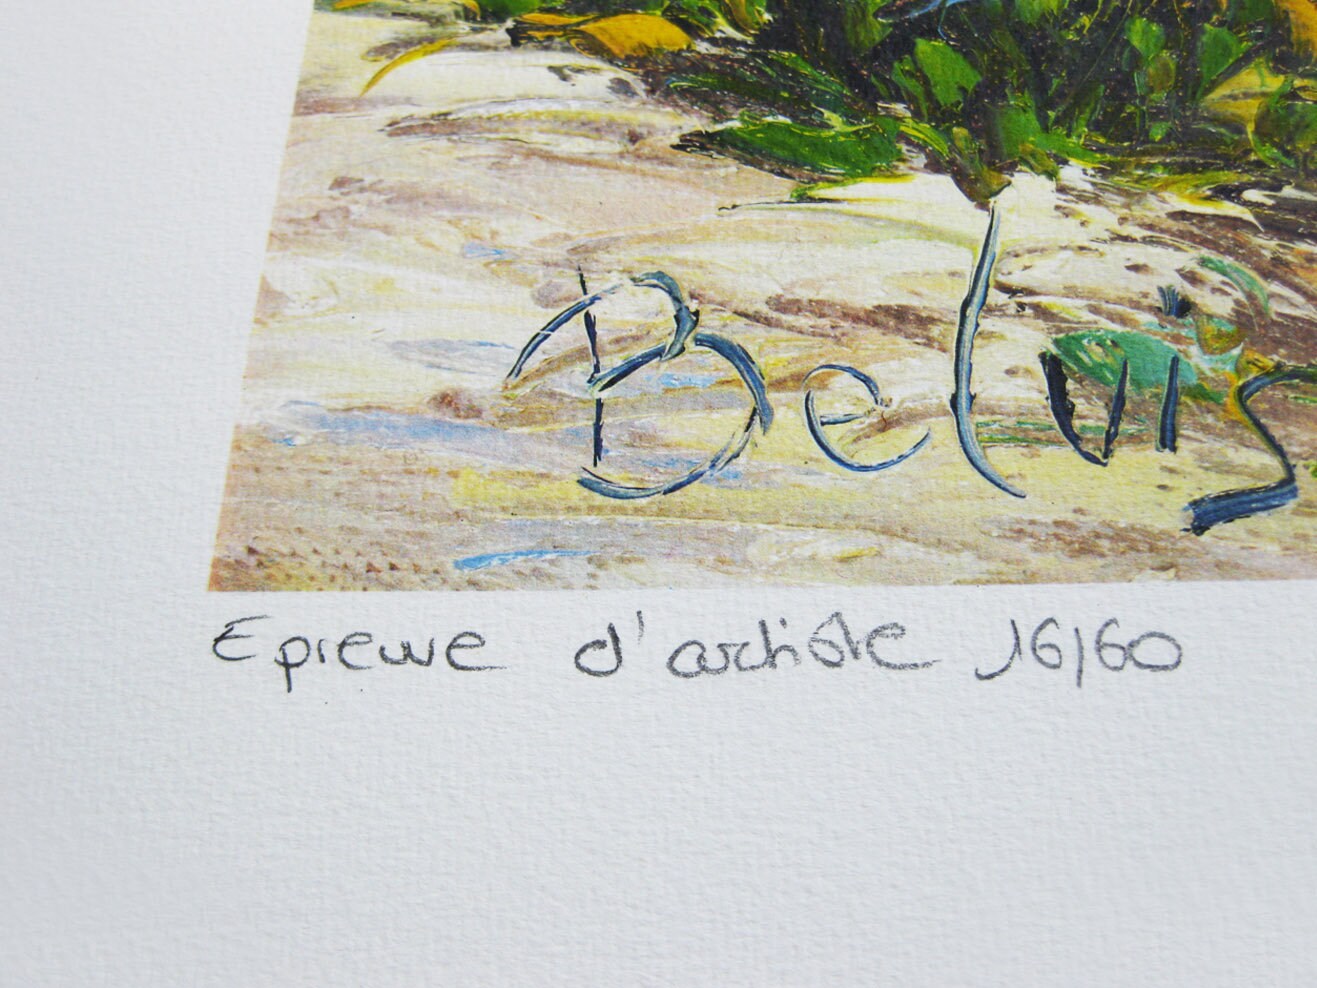 Belvis
Epreuve d'artiste 16/60